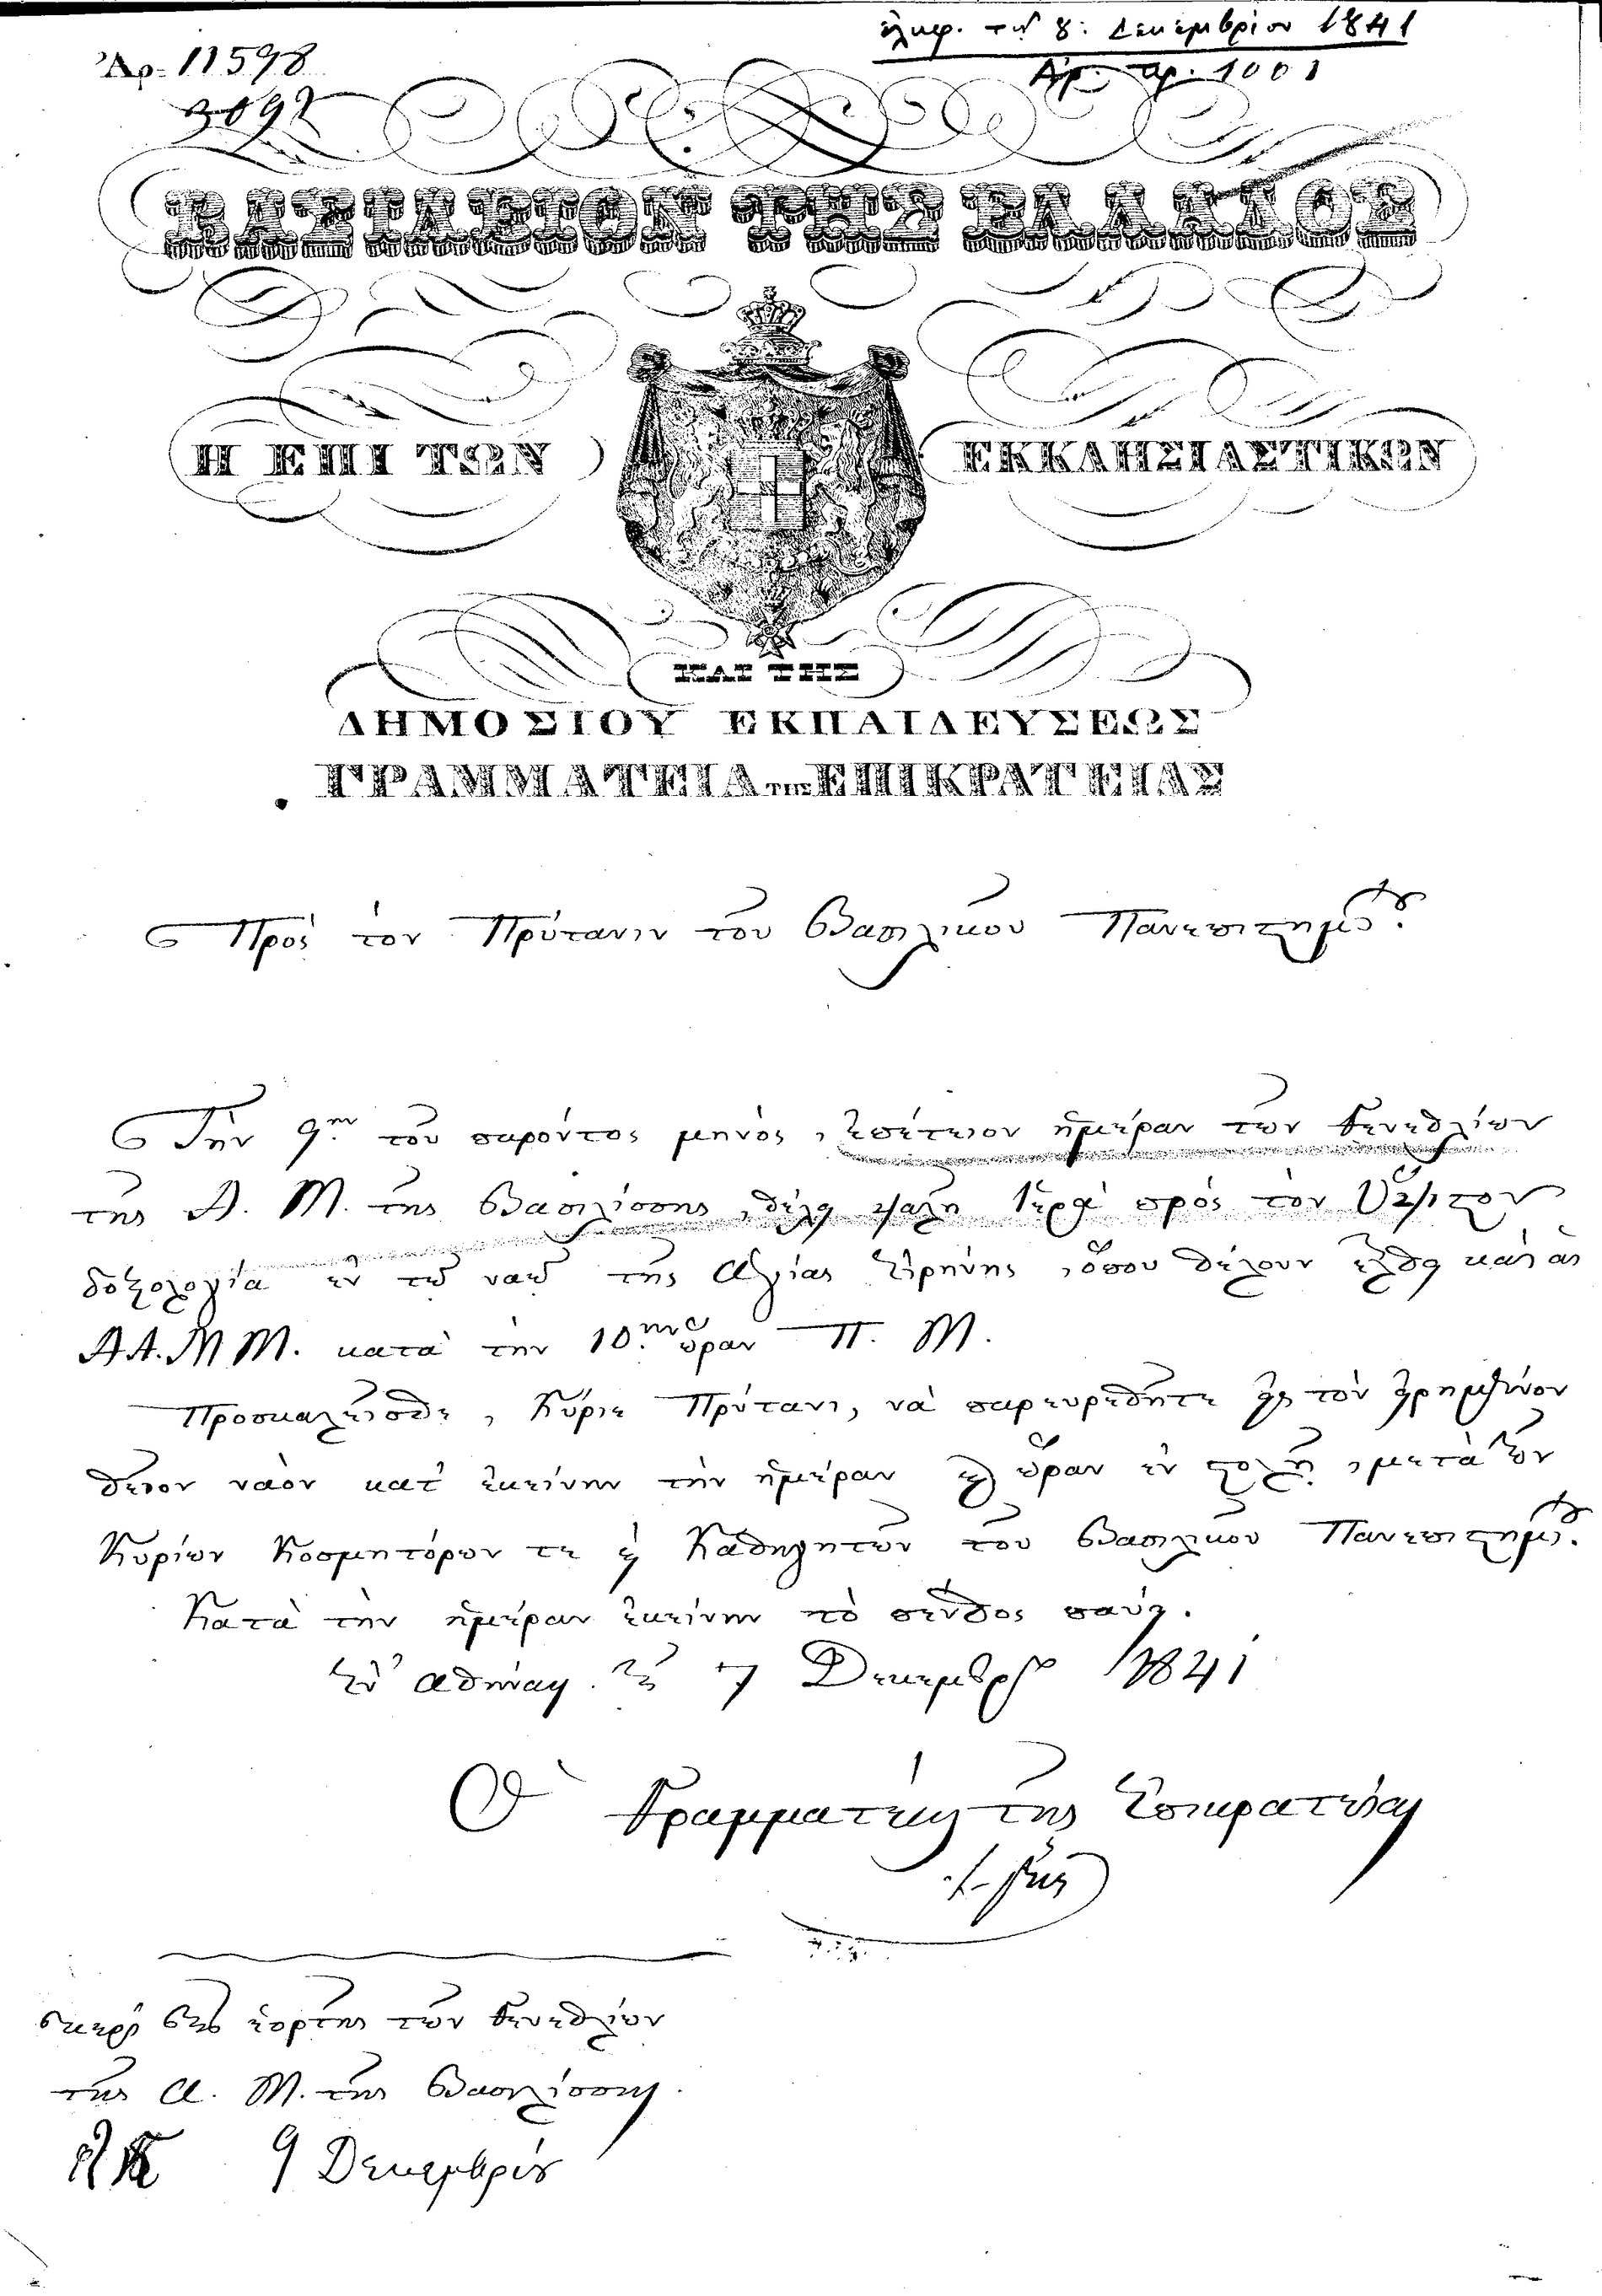 Ἀρ. 11598
3092
ἐλήφ. τῇ 8: Δεκεμβρίου 1841
Ἀρ. πρ. 1001
ΒΑΣΙΛΕΙΟΝ ΤΗΣ ΕΛΛΑΔΟΣ
Η ΕΠΙ ΤΩΝ ΕΚΚΛΗΣΙΑΣΤΙΚΩΝ
ΚΑΙ ΤΗΣ
ΔΗΜΟΣΙΟΥ ΕΚΠΑΙΔΕΥΣΕΩΣ
ΓΡΑΜΜΑΤΕΙΑ ΤΗΣ ΕΠΙΚΡΑΤΕΙΑΣ
Πρὸς τὸν Πρύτανιν τοῦ Βασιλικοῦ Πανεπιστημίου.
Τὴν 9ην τοῦ παρόντος μηνὸς, ἐπέτειον ἡμέραν τῶν Γενεθλίων
τῆς Α. Μ. τῆς Βασιλίσσης, θέλει ψαλῆ Ἱερὰ πρὸς τὸν Ὕψιστον
δοξολογία ἐν τῷ ναῷ τῆς Ἁγίας Εἰρήνης, ὅπου θέλουν ἐλθει καὶ αἱ
ΑΑ. ΜΜ. κατὰ τὴν 10ην ὥραν Π. Μ.
Προσκαλεῖσθε, Κύριε Πρύτανι, νὰ παρευρεθῆτε εἰς τὸν εἰρημένον
θεῖον ναὸν κατ' ἐκείνην τὴν ἡμέραν καὶ ὥραν ἐν στολῇ, μετὰ τῶν
Κυρίων Κοσμητόρων τε καὶ Καθηγητῶν τοῦ Βασιλικοῦ Πανεπιστημίου.
Κατὰ τὴν ἡμέραν ἐκείνην τὸ πένθος παύει.
Ἐν Ἀθήναις τῇ 7 Δεκεμβρίου 1841
Ὁ Γραμματεὺς τῆς Ἐπικρατείας
τῆς ἑορτῆς τῶν Γενεθλίων
τῆς Α. Μ. τῆς Βασιλίσσης.
9 Δεκεμβρίου